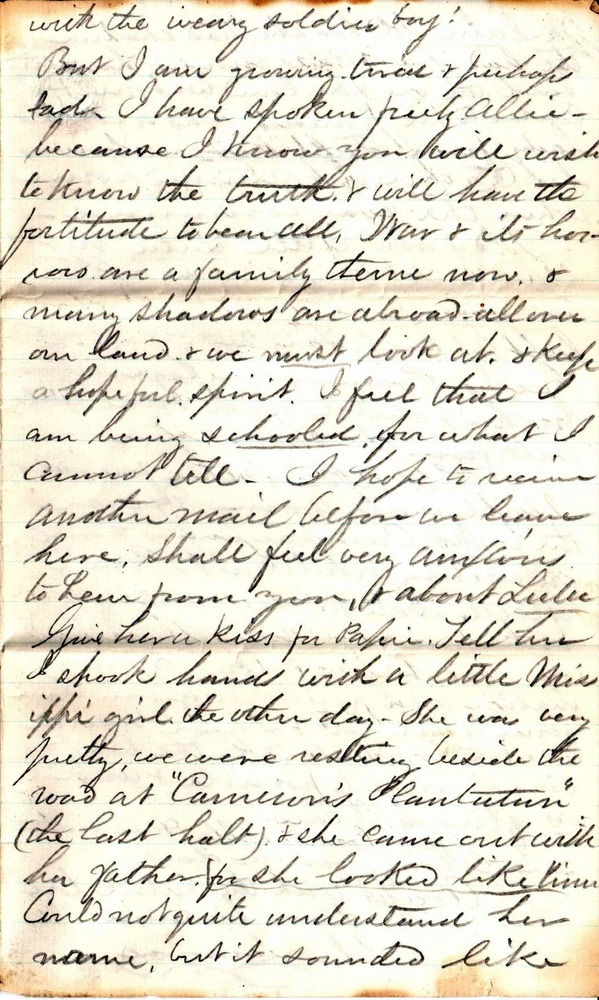 with the weary soldier boy!
But I am growing tired & perhaps
sad. I have spoken freely Allie -
because I know you will wish
to know the truth & will have the
fortitude to bear all. War & its hor-
rors are a family theme now, &
many shadows are abroad all over
our land & we must look at. & keep
a hopeful spirit. I feel that I
am being schooled for what I
cannot tell - I hope to receive
another mail before we leave
here, Shall feel very anxious
to hear from you, & about Lulie
Give her a kiss for Papa. Tell her
I shook hands with a little Miss
ippi girl the other day - She was very
pretty, we were resting beside the
road at "Cameron's Plantation"
(the last halt). & she came out with
her father for she looked like him
Could not quite understand her
name, but it sounded like